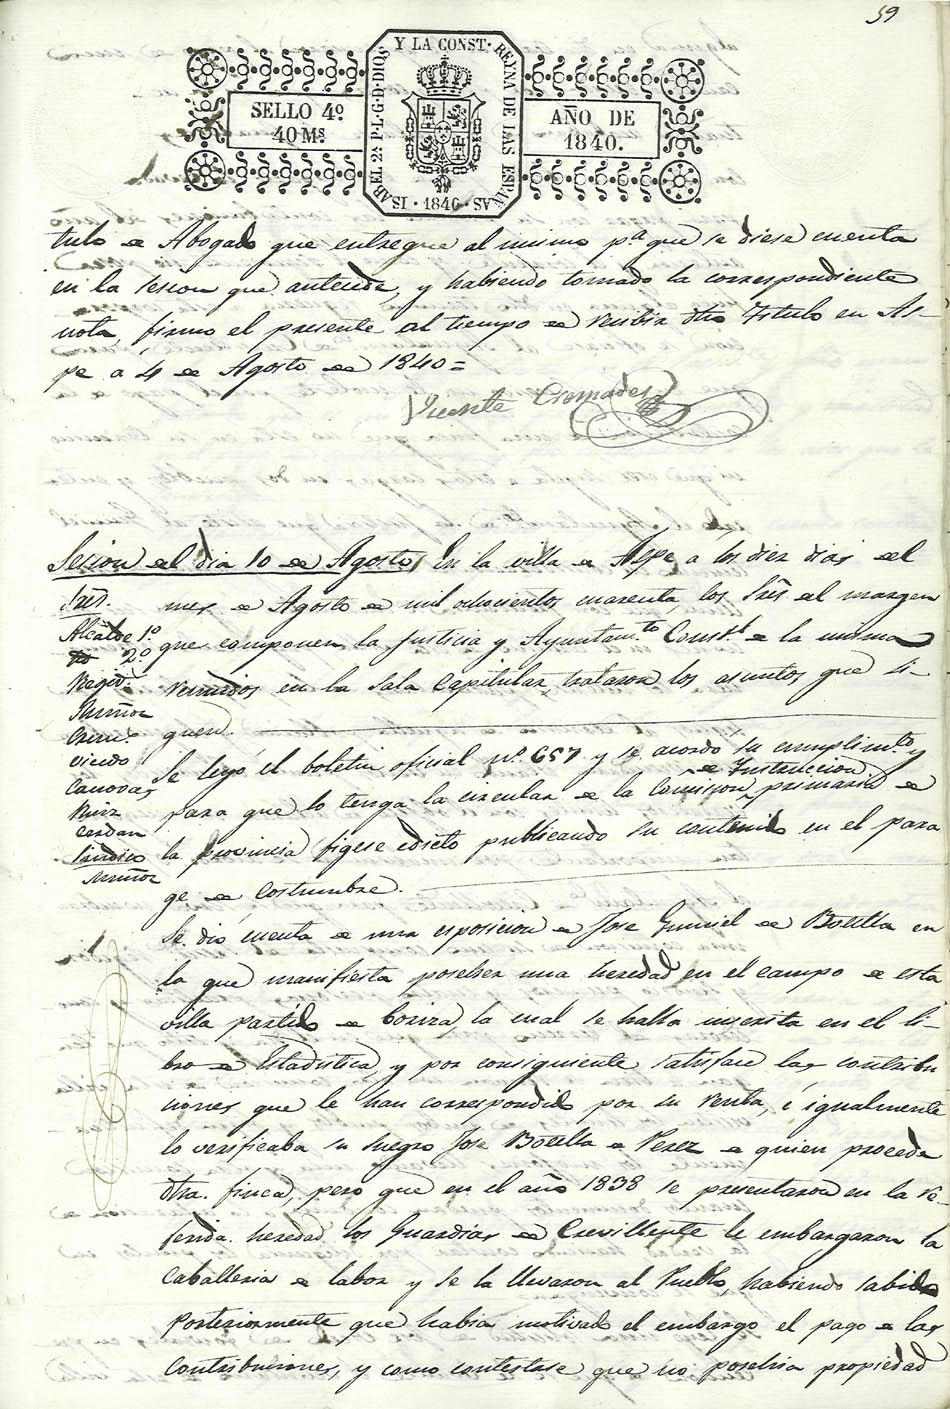 59
SELLO 4º
40 Ms
ISABEL 2ª P.L.G.D.DIOS Y LA CONST. REYNA DE LAS ESPAÑAS · 1840 ·
AÑO DE
1840.
tulo de Abogado que entregue al mismo pª que se diese cuenta
en la sesion que antecede, y habiendo tomado la correspondiente
nota, firmo el presente al tiempo de recibir dho Titulo en As-
pe á 4 de Agosto de 1840=
Vicente Cremades
Sesion del dia 10 de Agosto
En la villa de Aspe a los diez dias del
mes de Agosto de mil ochocientos cuarenta, los Sres del margen
que componen la Justicia y Ayuntam.to Const.l de la misma
reunidos en la Sala Capitular, trataron los asuntos que si-
guen.
Sres.
Alcalde 1.º
2.º
Regid.s
Muñoz
Crem.s
Vicedo
Canovas
Ruiz
Cerdan
Sindico
Muñoz
Se leyó el boletin oficial nº 657 y se acordó su cumplim.to y
para que lo tenga la circular de la Comision de Instruccion primaria de
la provincia figese edicto publicando su contenido en el para
ge de costumbre.
Se dió cuenta de una esposicion de Jose Gumiel de Botella en
la que manifiesta poseher una heredad en el campo de esta
villa partido de la cual se halla inscrita en el li-
bro de Estadistica, y por consiguiente satisface las contribu
ciones que le han correspondido por su renta, é igualmente
lo verificaba su suegro Jose Botella de Perez de quien procede
dha. finca, pero que en el año 1838 se presentaron en la re-
ferida heredad los Guardias de Crevillente le embargaron la
caballeria de labor y se la llevaron al Pueblo, habiendo sabido
posteriormente que habia motivado el embargo el pago de las
contribuciones, y como contestase que no posehia propiedad